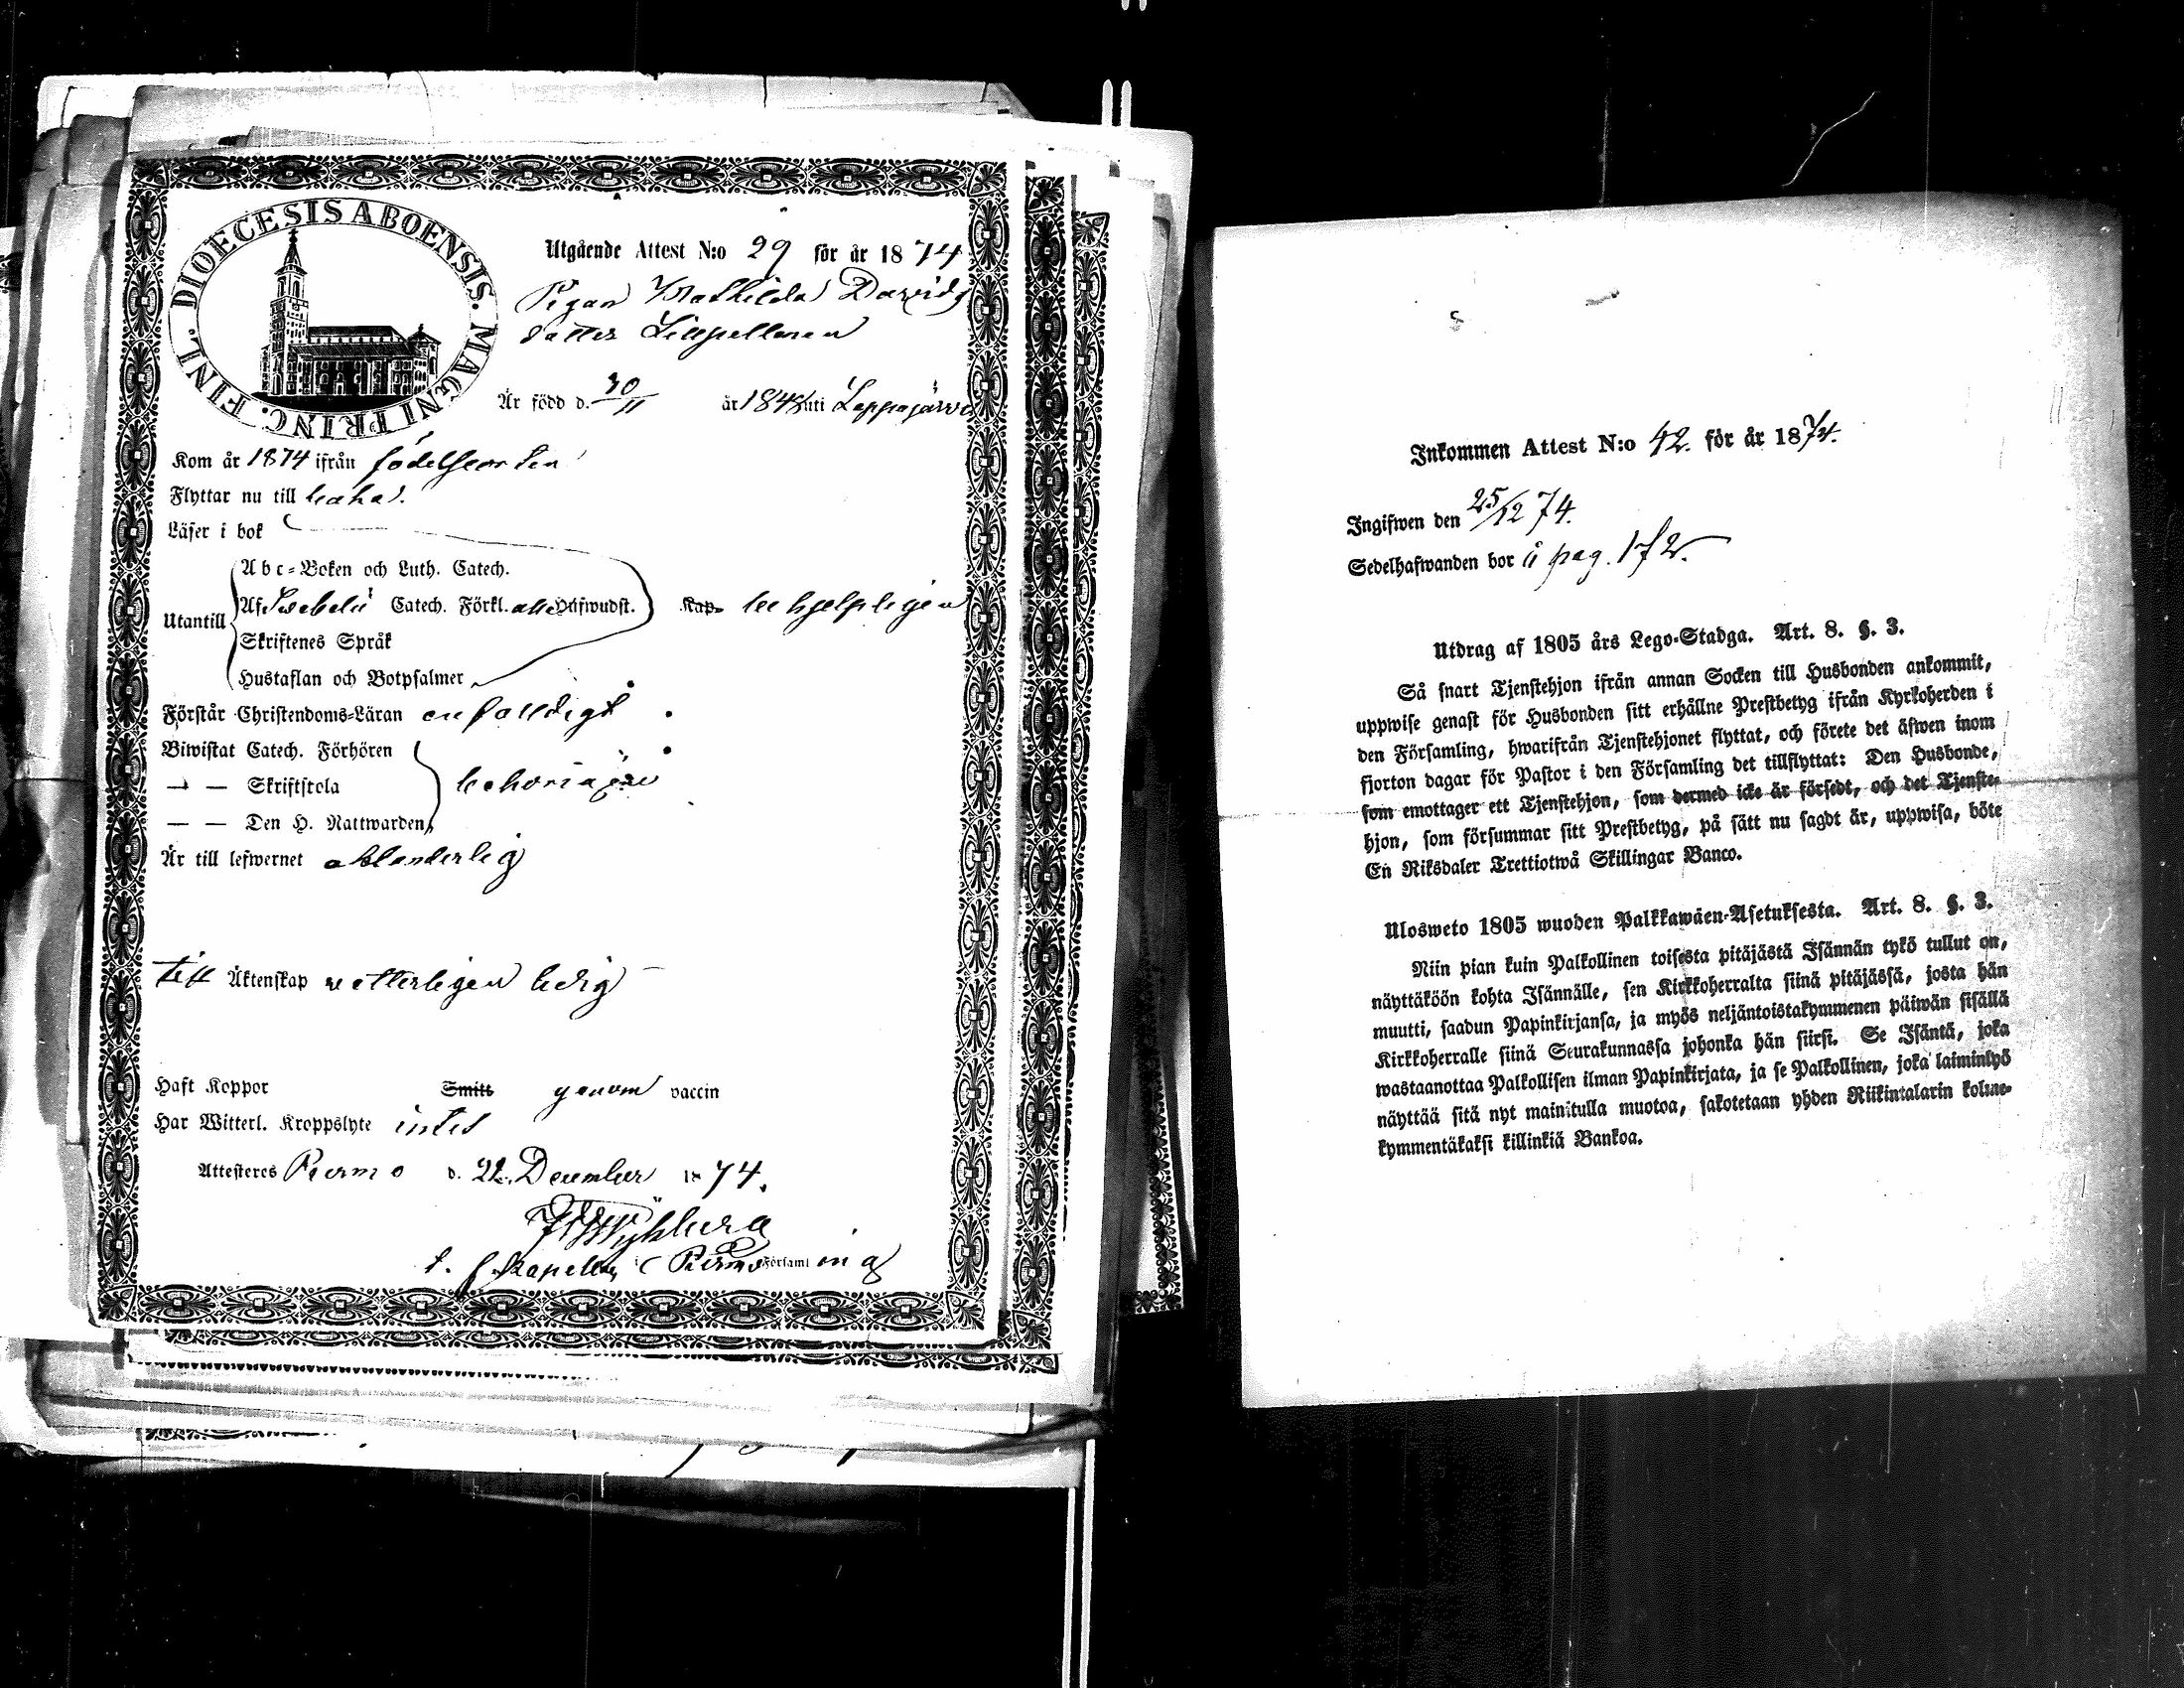 DIOECESIS ABOENSIS. MAGNI PRINC. FINL.
Utgående Attest N:o 29 för år 1874
Pigan Mathilda Davids
dotter Lillpellonen
Är född d. 30/11 år 1848 uti Lappajärvi
Kom år 1874 ifrån födelseorten
Flyttar nu till
Läser i bok
Abc-Boken och Luth. Catech.
Utantill Af Svebelii Catech. Förkl. alla Hufwudst. Kap. behjelpligen
Skriftenes Språk
Hustaflan och Botpsalmer
Förstår Christendoms-Läran enfaldigt
Biwistat Catech. Förhören
— — Skriftskola behörigen
— — Den H. Nattwarden
Är till lefwernet oklanderlig
till Äktenskap vetterligen ledig
Haft Koppor Smitt genom vaccin
Har Witterl. Kroppslyte intet
Attesteres Purmo d. 22 December 1874.
t. f. Kapellan i Purmo Församling
Inkommen Attest N:o 42. för år 1874.
Ingifwen den 25/12 74.
Sedelhafwanden bor å pag. 172.
Utdrag af 1805 års Lego-Stadga. Art. 8. §. 3.
Så snart Tjenstehjon ifrån annan Socken till Husbonden ankommit,
uppwise genast för Husbonden sitt erhållne Prestbetyg ifrån Kyrkoherden i
den Församling, hwarifrån Tjenstehjonet flyttat, och förete det äfwen inom
fjorton dagar för Pastor i den Församling det tillflyttat: Den Husbonde,
som emottager ett Tjenstehjon, som dermed icke är försedt, och det Tjenste-
hjon, som försummar sitt Prestbetyg, på sätt nu sagdt är, uppwisa, böte
En Riksdaler Trettiotwå Skillingar Banco.
Ulosweto 1805 wuoden Palkkawäen-Asetuksesta. Art. 8. §. 3.
Niin pian kuin Palkollinen toisesta pitäjästä Isännän tykö tullut on,
näyttäköön kohta Isännälle, sen Kirkkoherralta siinä pitäjässä, josta hän
muutti, saadun Papinkirjansa, ja myös neljäntoistakymmenen päiwän sisällä
Kirkkoherralle siinä Seurakunnassa johonka hän siirsi. Se Isäntä, joka
wastaanottaa Palkollisen ilman Papinkirjata, ja se Palkollinen, joka laiminlyö
näyttää sitä nyt mainitulla muotoa, sakotetaan yhden Riikintalarin kolme-
kymmentäkaksi killinkiä Bankoa.